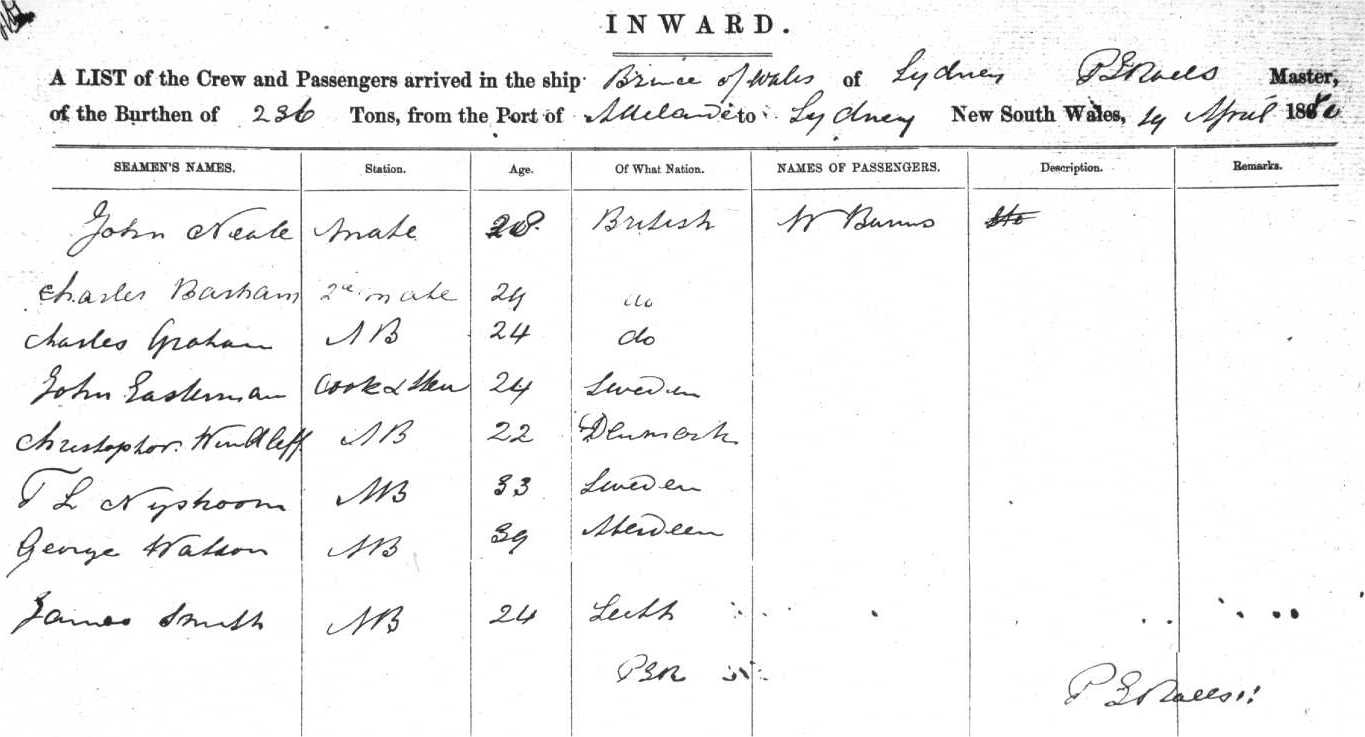 INWARD.
A LIST of the Crew and Passengers arrived in the ship Prince of Wales of Sydney Master,
of the Burthen of 236 Tons, from the Port of Adelaide to Sydney New South Wales, 19 April 1880
SEAMEN'S NAMES. Station. Age. Of What Nation. NAMES OF PASSENGERS. Description. Remarks.
John Neale Mate 28 British W Burns
Charles Barham 2nd mate 24 do
Charles Graham AB 24 do
John Easterman Cook & Stew 24 Sweden
Christophor AB 22 Denmark
T L Nystroom AB 33 Sweden
George Watson AB 39 Aberdeen
James Smith AB 24 Leith